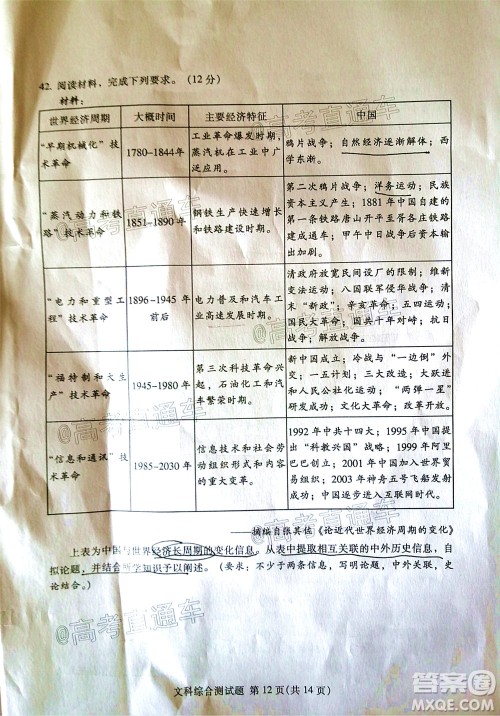 42. 阅读材料，完成下列要求。（12 分）
材料：
世界经济周期 大概时间 主要经济特征 中国
“早期机械化”技术革命 1780-1844年 工业革命爆发时期，蒸汽机在工业中广泛应用。 鸦片战争；自然经济逐渐解体；西学东渐。
“蒸汽动力和铁路”技术革命 1851-1890年 钢铁生产快速增长和铁路建设时期。 第二次鸦片战争；洋务运动；民族资本主义产生；1881年中国自建的第一条铁路唐山开平至胥各庄铁路建成通车；甲午中日战争后资本输出加剧。
“电力和重型工程”技术革命 1896-1945年前后 电力普及和汽车工业高速发展时期。 清政府放宽民间设厂的限制；维新变法；八国联军侵华战争；清末“新政”；辛亥革命；五四运动；国民大革命；国共十年对峙；抗日战争。
“福特制和大生产”技术革命 1945-1980年 第三次科技革命兴起，石油化工和汽车繁荣时期。 新中国成立；冷战与“一边倒”外交；一五计划、三大改造；大跃进和人民公社化运动；“两弹一星”研发成功；文化大革命；改革开放。
“信息和通讯”技术革命 1985-2030年 信息技术和社会劳动组织形式和内容的重大变革。 1992年中共十四大；1995年中国提出“科教兴国”战略；1999年阿里巴巴创立；2001年中国加入世界贸易组织；2003年神舟五号飞船发射成功；中国逐步进入互联网时代。
——摘编自张其佐《论近代世界经济周期的变化》
上表为中国与世界经济长周期的变化信息。从表中提取相互关联的中外历史信息，自
拟论题，并结合所学知识予以阐述。（要求：不少于两条信息，写明论题，中外关联，史
论结合。）
文科综合测试题 第 12 页(共 14 页)
@高考直通车
@高考直通车
@高考直通车
@高考直通车
@高考直通车
答案圈
MXQE.COM